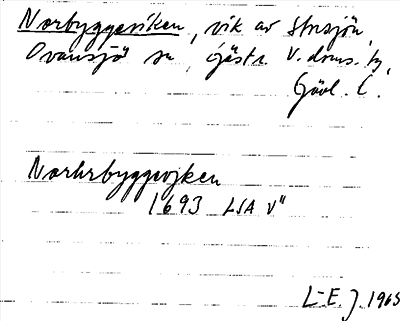 Norbyggeviken, vik av Storsjön,
Ovansjö sn, Gästr. V. doms. hy,
Gävl. L.
Norhrbyggwjken
1693 LSA V"
L-E. J 1965